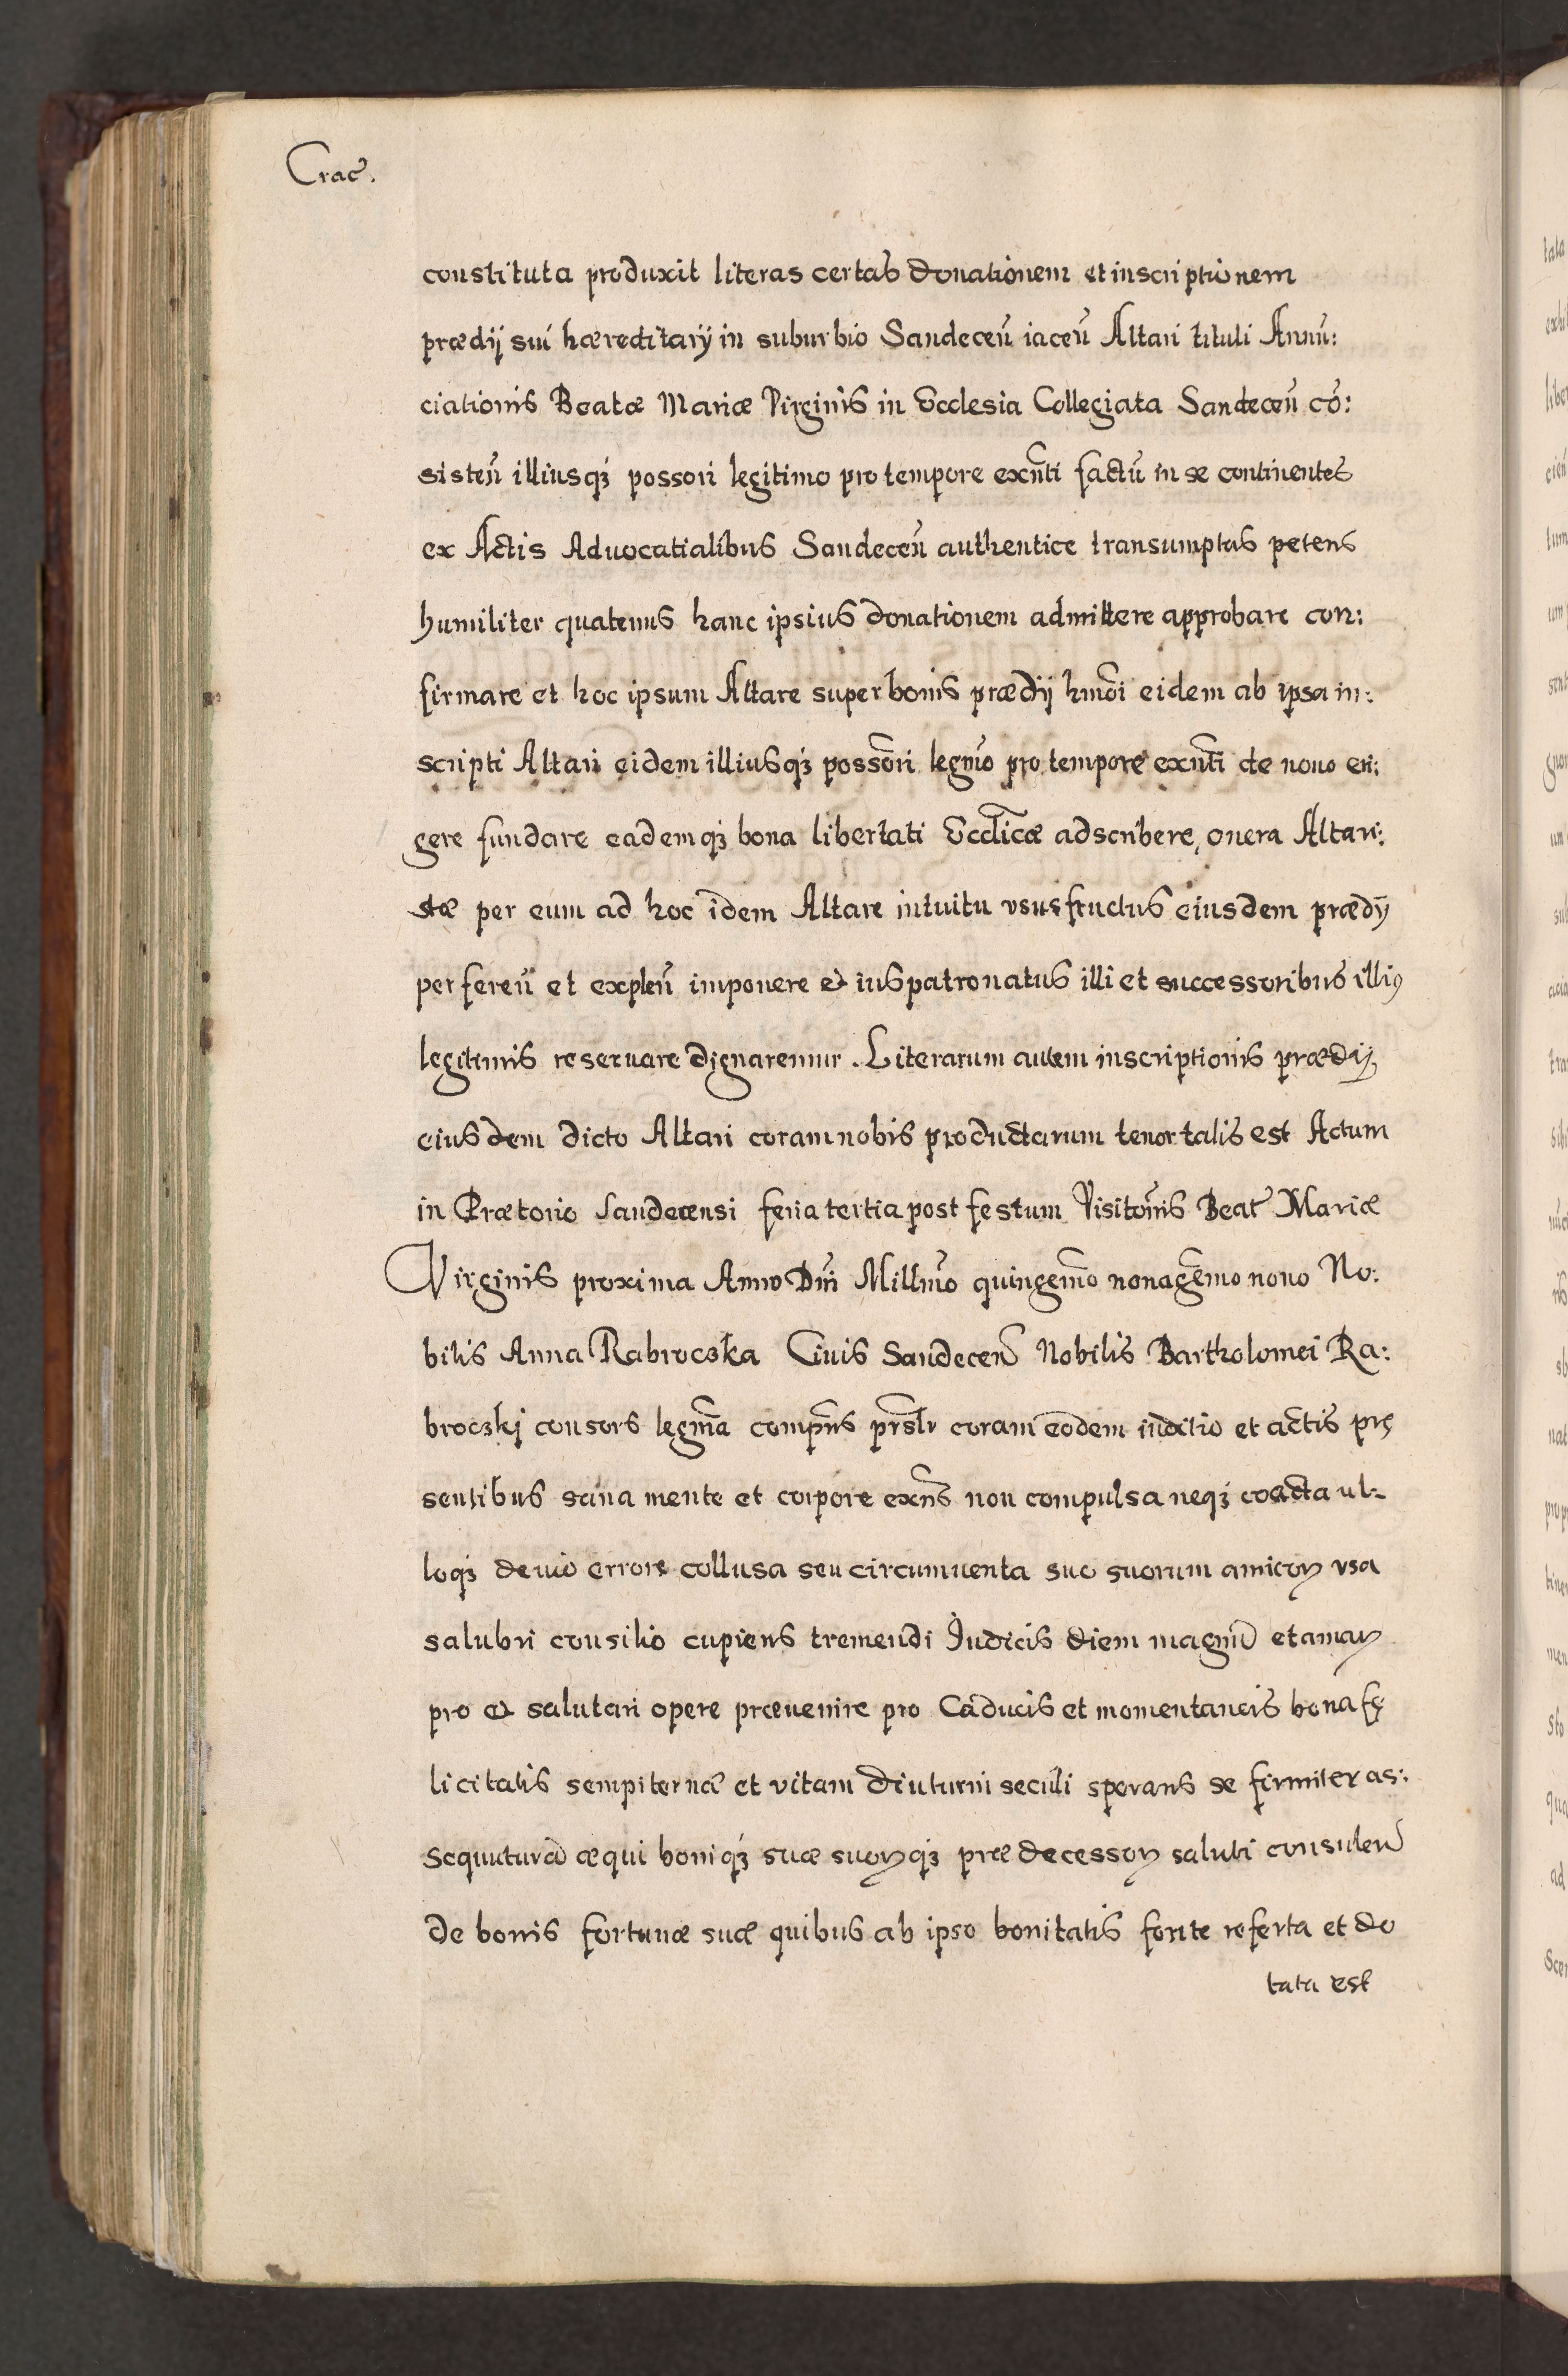 Crac̃.
constituta produxit literas certas donationem et inscriptionem
prædij sui hæreditarij in suburbio Sandeceñ iaceñ Altari tituli Annũ:
ciationis Beatæ Mariæ Virginis in Ecclesia Collegiata Sandeceñ cõ:
sisteñ illiusq3 possori legitimo pro tempore exñti factũ in se continentes
ex Actis Advocatialibus Sandeceñ authentice transumptas petens
humiliter quatenus hanc ipsius donationem admittere approbare con:
firmare et hoc ipsum Altare super bonis prædij hmõi eidem ab ipsa in:
scripti Altari eidem illiusq3 possõri legm̃o pro tempore exñti de nouo eri:
gere fundare eademq3 bona libertati Eccl̃icæ adscribere, onera Altari:
stæ per eum ad hoc idem Altare intuitu vsusfructus eiusdem prædij
perfereñ et expleñ imponere et iuspatronatus illi et successoribus illiꝯ
legitimis reseruare dignaremur. Literarum autem inscriptionis prædij
eiusdem dicto Altari coram nobis productarum tenor talis est Actum
in Prætorio Sandecensi feria tertia post festum Visitõnis Beat̃ Mariæ
Virginis proxima Anno Dñi Millm̃o quingem̃o nonagẽmo nono No:
bilis Anna Rabrocska Ciuis Sandeceñ Nobilis Bartholomei Ra:
broczkj consors legm̃a compñs pr̃slr coram eodem iudicio et actis prę
sentibus sana mente et corpore exñs non compulsa neq3 coacta ul-
loq3 deuio errore collusa seu circumuenta suo suorum amicoꝝ vsa
salubri consilio cupiens tremendi Iudicis diem magnũ et amaꝝ
pro et salutari opere præuenire pro Caducis et momentaneis bona fę
licitatis sempiternæ et vitam diuturni seculi sperans se firmiter as:
sequuturã æqui boniq3 suæ suoꝝq3 prædecessoꝝ saluti consuleñ
de bonis fortunæ suæ quibus ab ipso bonitatis fonte referta et do
tata est